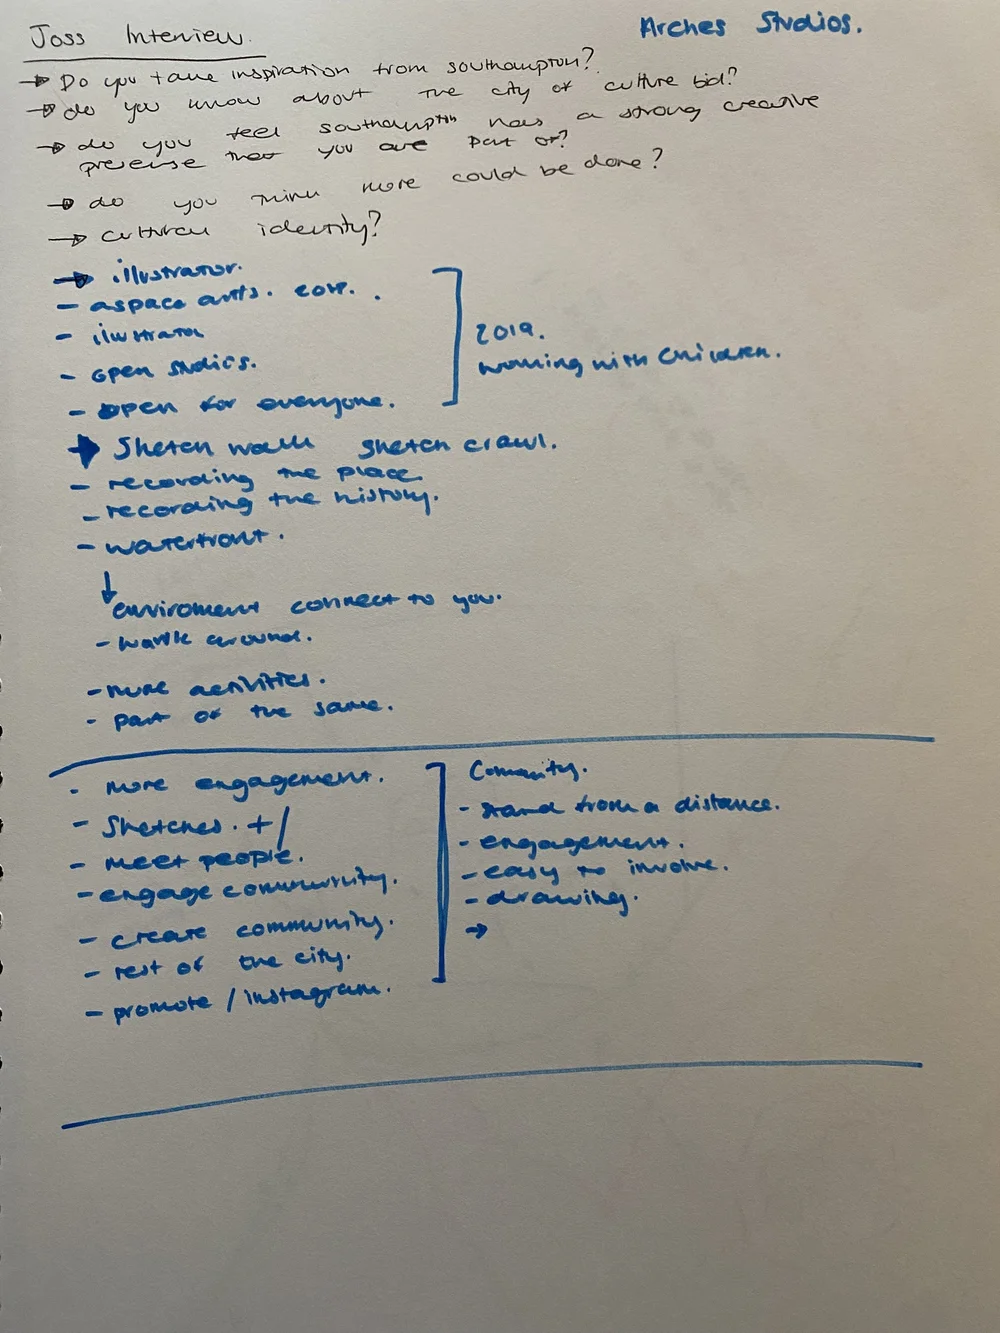 Joss Interview.
Arches Studios.
→ Do you take inspiration from southampton?
→ do you know about the city of culture bid?
→ do you feel southampton has a strong creative
presense that you are part of?
→ do you think more could be done?
→ cultural identity?
→ illustrator.
- aspace arts.
- illustrator
- open studios.
- open for everyone.
2019.
working with children.
→ Sketch walk sketch crawl.
- recording the place
- recording the history.
- waterfront.
↓
enviroment connect to you.
- walk around.
- more activities.
- part of the same.
- more engagement.
- Sketches. +/
- meet people.
- engage community.
- create community.
- rest of the city.
- promote / instagram.
Comunity.
- stand from a distance.
- engagement.
- easy to involve.
- drawing.
→